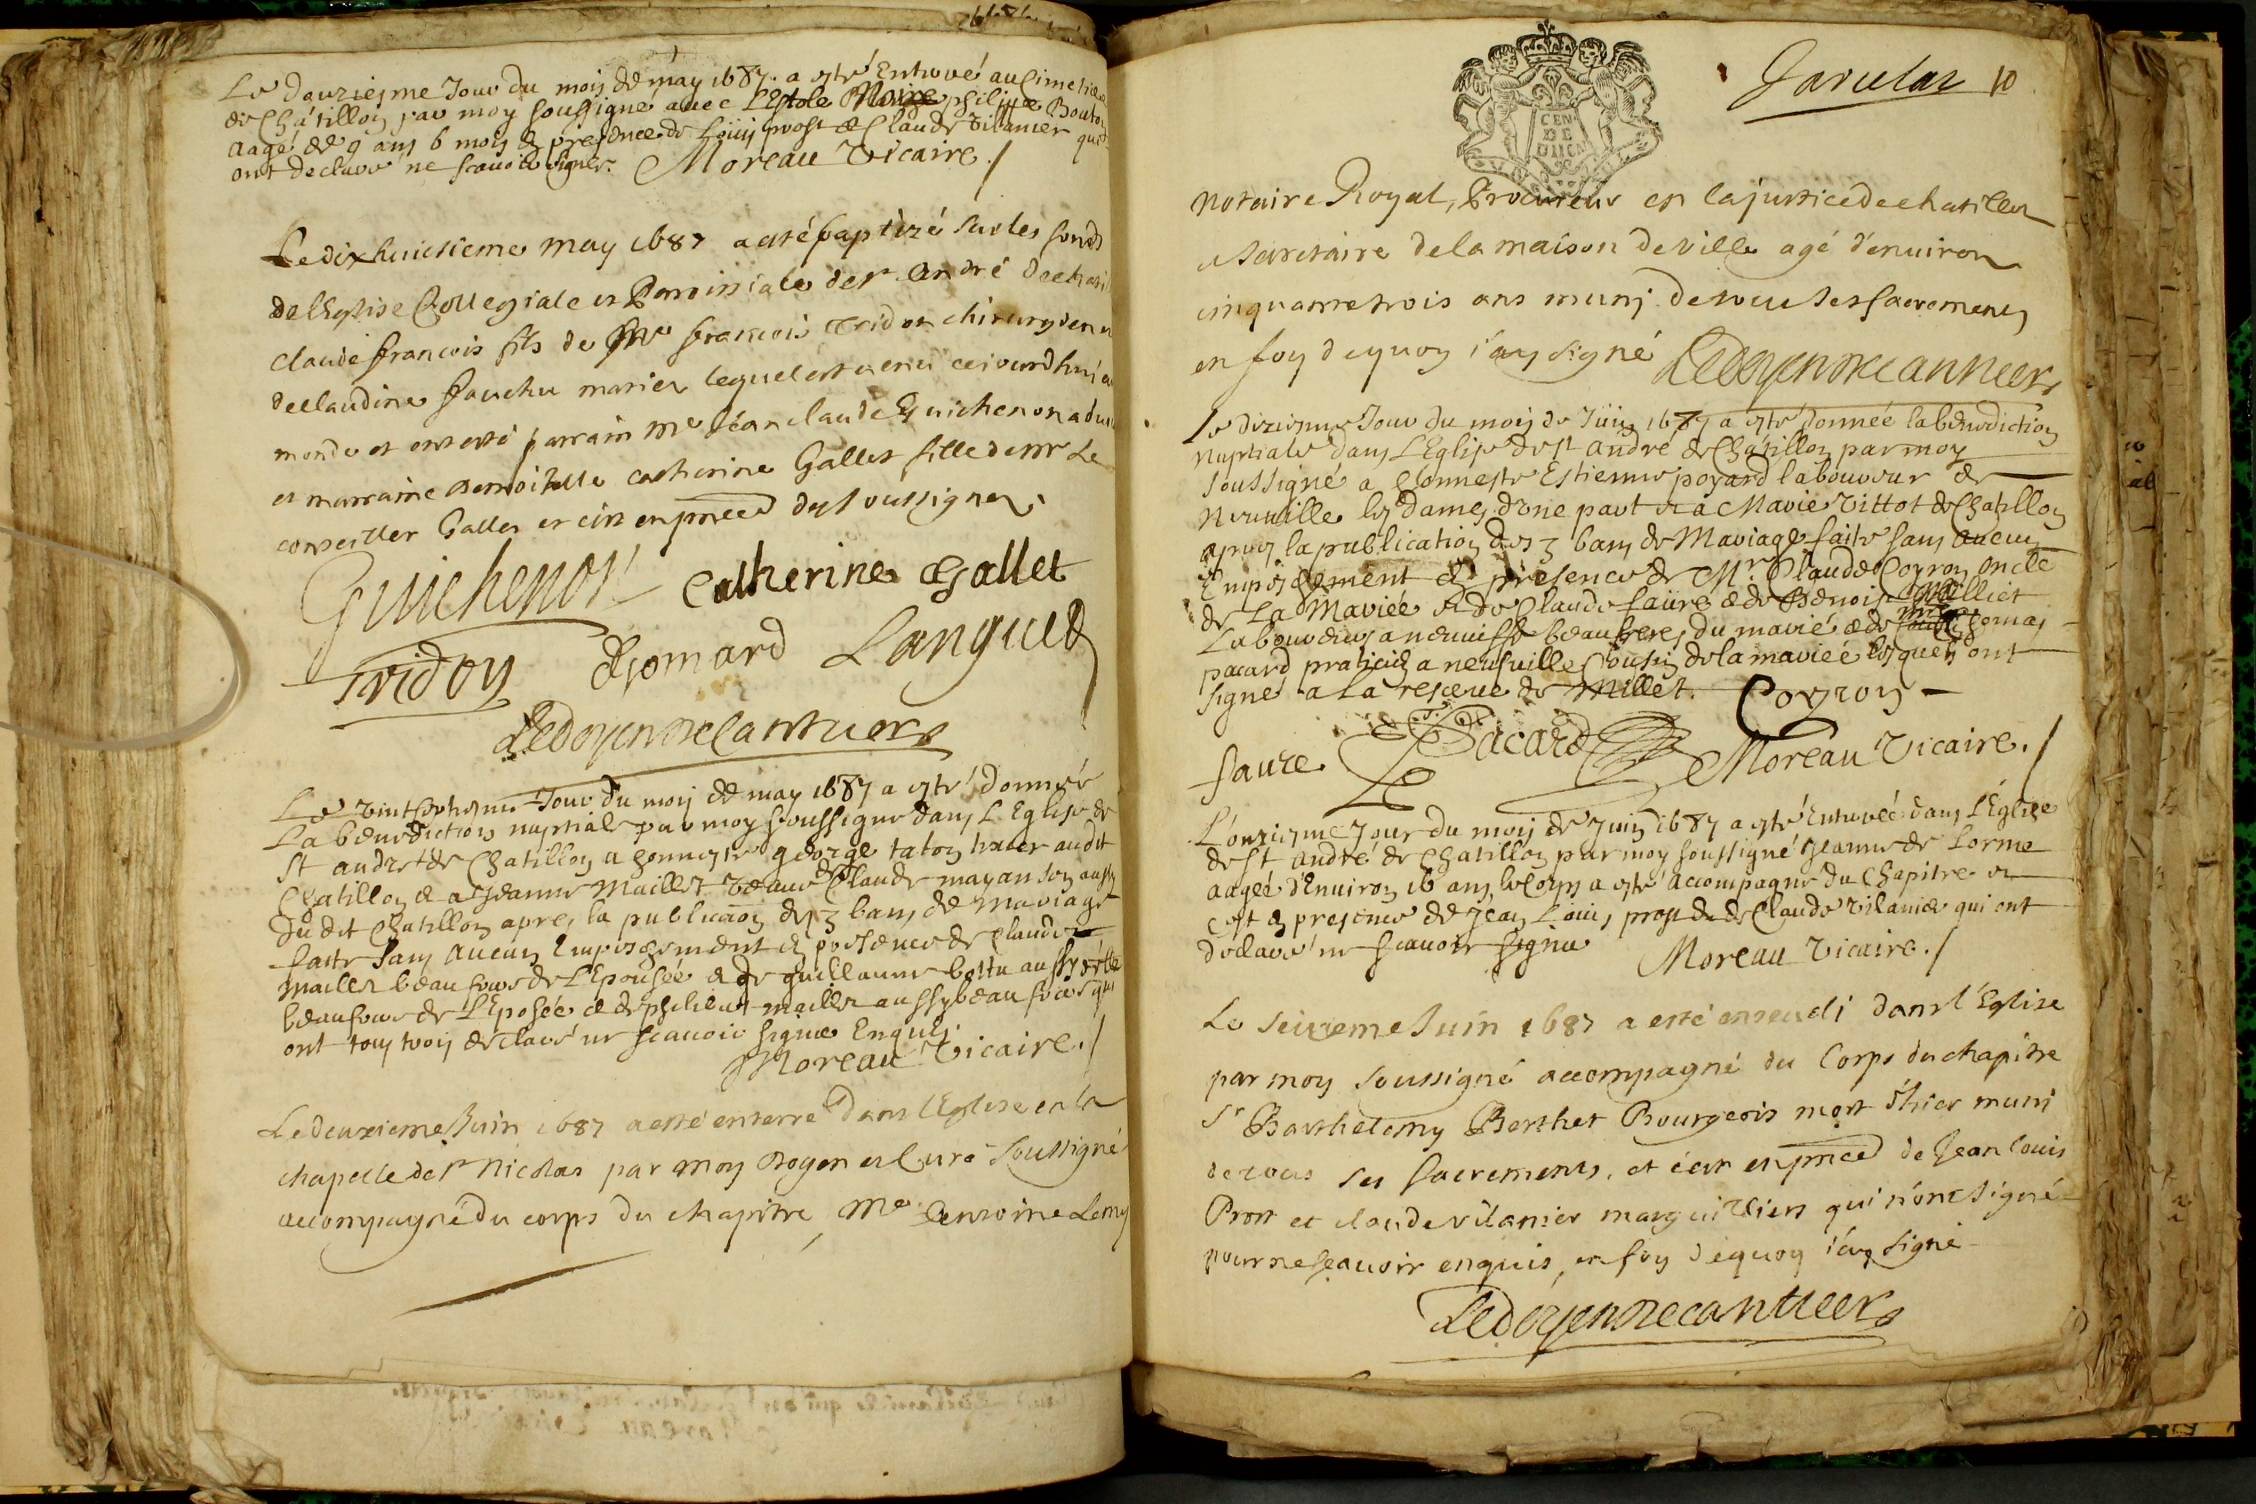 Le douziesme Jour du mois de may 1687. a esté Enterré au Cimetiere
de Châtillon par moy soussigné avec L'Estole Noire philippe Bouton
aagé de 9 ans 6 mois en presence de Loüis prost & Claude vilanier qui
ont declaré ne scavoir signer. Moreau vicaire./
Le dix huictieme may 1687 a esté baptizé sur les fonds
de l'Eglise Collegiale et Parroissiale de st André de chati
claude francois fils de Me francois tridon chirurgien et
de claudine fauchu mariez lequel est venu ce iourdhui au
monde et ont esté parrain Mr Jean claude Guichenon advo
et marraine demoiselle catherine Gallet fille de Mr Le
conseiller Gallet et c'est en pnce des soussignez.
Guichenon Catherine Gallet
Tridon Gomard Languet
Le Vint septiesme Jour du mois de may 1687 a esté donnée
La benediction nuptiale par moy soussigné dans L'Eglise de
St andre de Chatillon a honneste george taton tixier audit
Chatillon & a Jeanne Maillet veauve de Claude mayanson aussy
dudit Chatillon apres la publicaon des 3 bans de Mariage
faite sans Aucun Empeschement en presence de Claude
Maillet beau frere de L'Epousée & de guillaume bottu aussy
beau frere de L'Eposée & de philibert maillet aussy beau frere qui
ont tous trois declaré ne scavoir signer Enquis.
Moreau vicaire./
Le deuxieme Juin 1687 a esté enterré dans l'Eglise en la
chapelle de st Nicolas par moy Doyen et Curé soussigné
accompagné du corps du chapitre, Me Antoine Lemy
Javelar 10
CEN
DE
notaire Royal, Procureur en la justice de chatillon
et secretaire de la maison de ville agé d'environ
cinquante trois ans muni de tous ses sacrements
en foy de quoy j'ay signé
Le dixiesme Jour du mois de Juin 1687 a esté donnée la benediction
Nuptiale dans L'Eglise de st André de Châtillon par moy
soussigné a honneste Estienne poyard laboureur de
Neuville les dames d'une part et a Marie vittot de Chatillon
apres la publication des 3 bans de Mariage faite sans Aucun
Empeschement en presence de Mr. Claude Coyron Oncle
de La Mariée & de Claude faure & de Benoist Milliet
Laboureurs a neuville beaufreres du marié & de Thomas
pacard praticien a neufville Cousin de la mariée lesquels ont
signé a La reserve de Millet. Coyron
faure Pacard Moreau vicaire./
L'onziesme Jour du mois de Juin 1687 a esté Enterrée dans L'Eglise
de St André de Chatillon par moy soussigné Jeanne de Lorme
aagée d'Environ 16 ans, le Corps a esté accompagné du Chapitre et
c'est en presence de Jean Louis prost & de Claude vilanier qui ont
declaré ne scavoir signer Moreau vicaire./
Le seizieme Juin 1687 a esté enseveli dans l'Eglise
par moy soussigné accompagné du Corps du chapitre
sr Barthelemy Berthet Bourgeois mort d'hier muni
de tous ses sacrements, et c'est en pnce de Jean louis
Prost et claude vilanier marguilliers qui n'ont signé
pour ne scavoir enquis, en foy de quoy j'ay signé